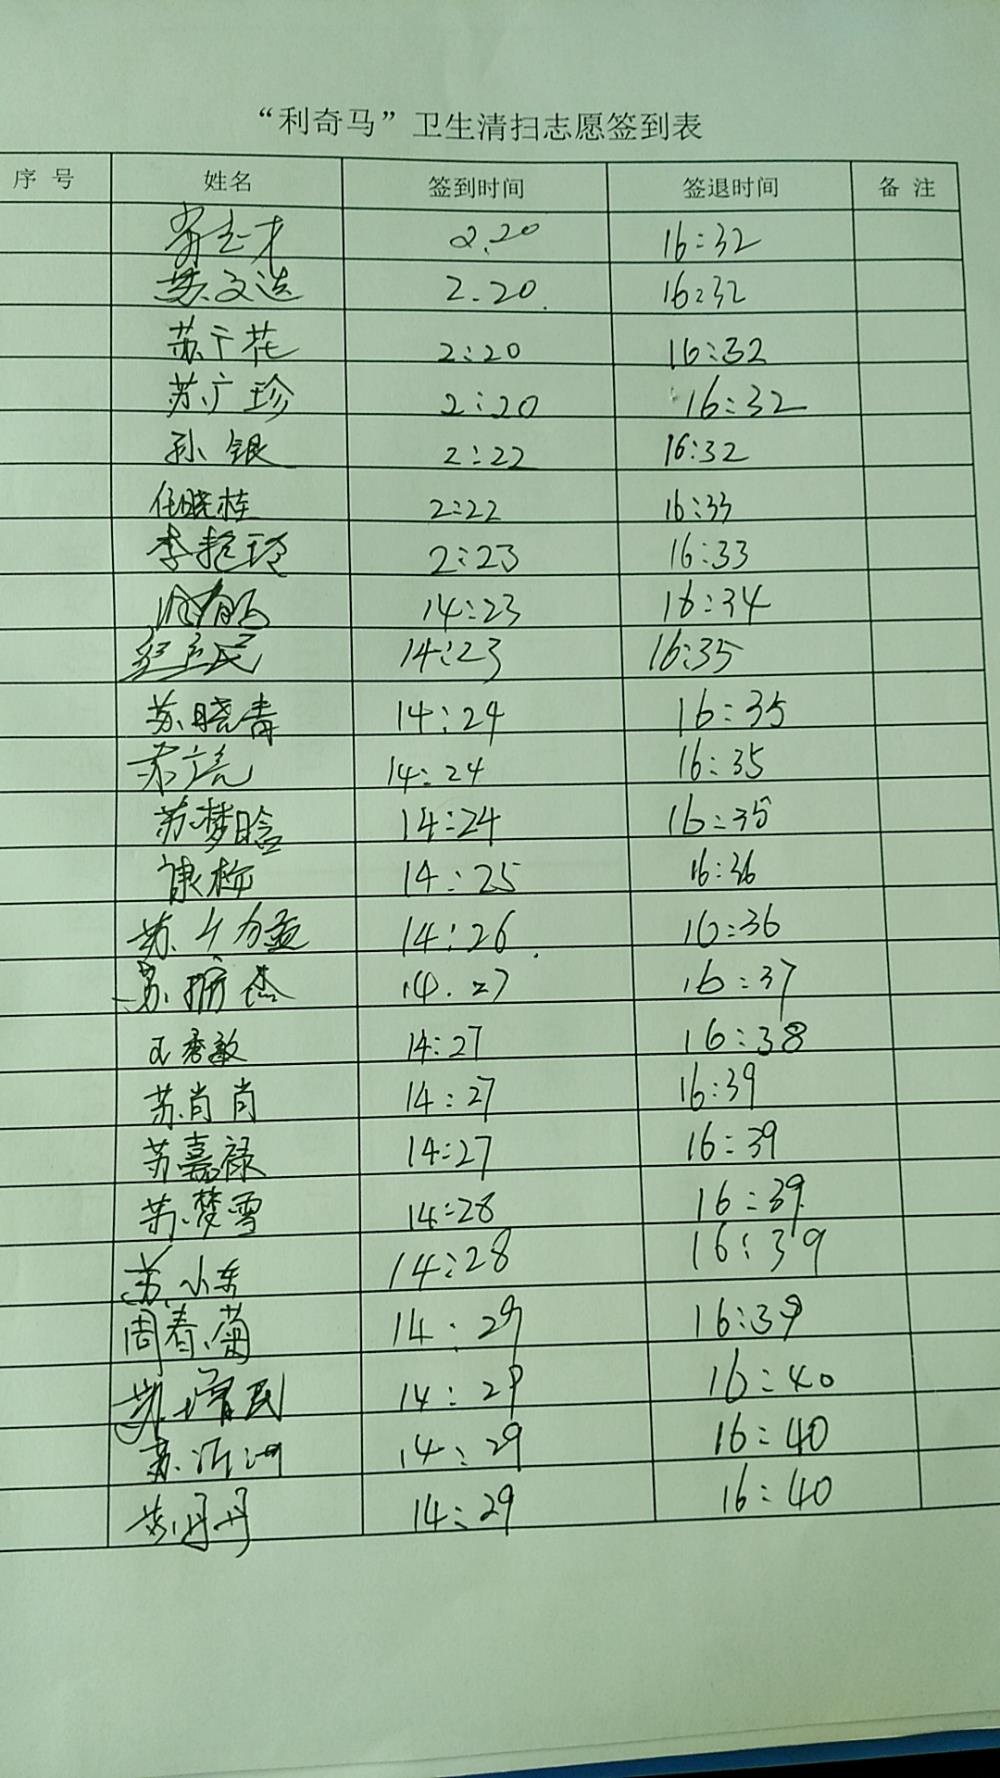 “利奇马”卫生清扫志愿签到表
序号 姓名 签到时间 签退时间 备注
2.20 16:32
苏文选 2.20. 16:32
苏广花 2:20 16:32
苏广珍 2:20 16:32
孙银 2:22 16:32
任晓桂 2:22 16:33
李艳玲 2:23 16:33
14:23 16:34
14:23 16:35
苏晓青 14:24 16:35
14:24 16:35
苏梦晗 14:24 16:35
康梅 14:25 16:36
苏 14:26 16:36
苏 杰 14.27 16:37
王秀敏 14:27 16:38
苏肖肖 14:27 16:39
苏嘉禄 14:27 16:39
苏梦雪 14:28 16:39
苏小东 14:28 16:39
周春菊 14:29 16:39
苏增民 14:29 16:40
苏沂河 14:29 16:40
苏丹丹 14:29 16:40